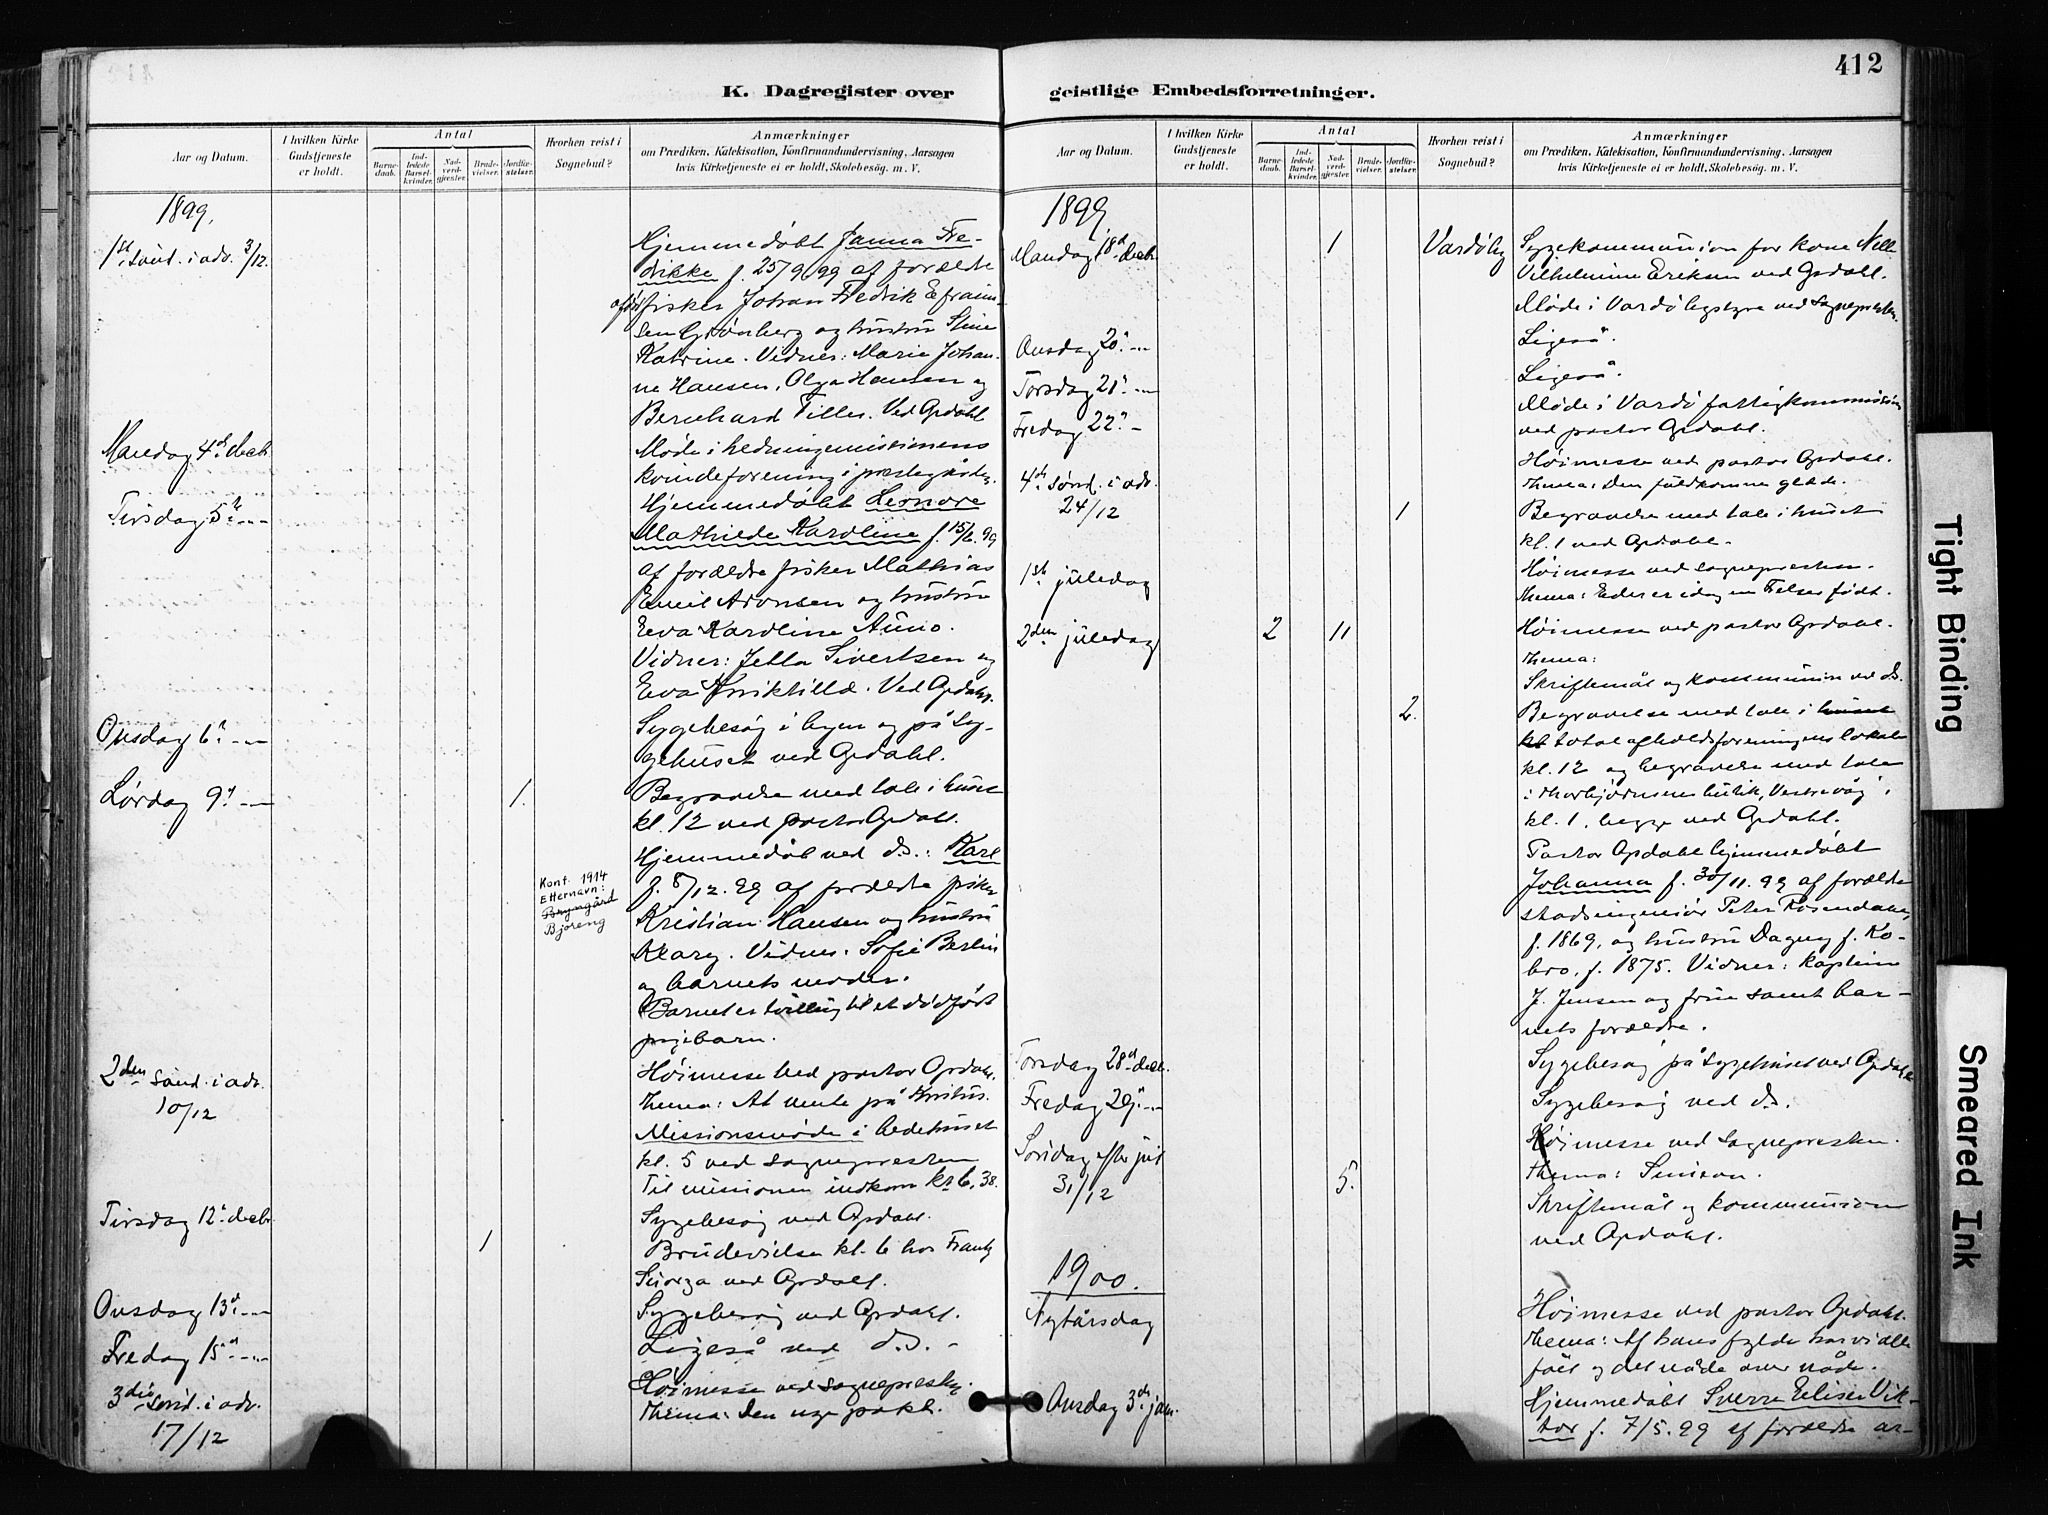 412
K. Dagregister over
geistlige Embedsforretninger.
Aar og Datum.
I hvilken Kirke Gudstjeneste er holdt.
Antal
Barnedaab.
Indledede Barselkvinder.
Nadverdgjester.
Brudevielser.
Jordfæstelser.
Hvorhen reist i Sognebud?
Anmærkninger
om Prædiken, Katekisation, Konfirmandundervisning, Aarsagen
hvis Kirketjeneste ei er holdt, Skolebesøg. m. V.
1899.
1st. sønd. i adv. 3/12.
Hjemmedøbt Janna Fre-
drikke f. 25/9. 99 af forældre
fisker Johan Fredrik Efraim-
sen Grønberg og hustru Stine
Katrine. Vidner: Marie Johan-
ne Hansen, Olga Hansen og
Bernhard Tiller. Ved Opdahl.
Mandag 4d decbr
Møde i hedningemissionens
kvindeforening i præstegården.
Tirsdag 5t. -"-
Hjemmedøbt Leonore
Mathilde Karoline f. 15/6. 99
af forældre fisker Mathias
Emil Aronsen og hustru
Eva Karoline Auno.
Vidner: Jetta Sivertsen og
Eva. Ved Opdahl.
Onsdag 6t -"-
Sygebesøg i byen og på sy-
gehuset ved Opdahl.
Lørdag 9d -"-
1.
Begravelse med tale i huset
kl. 12 ved pastor Opdahl.
Hjemmedøbt ved ds.: Karl
Kont. 1914
Etternavn:
Bjoreng
f. 8/12. 99 af forældre fisker
Kristian Hansen og hustru
Klary. Vidner: Sofie Berlin
og barnets moder.
Barnet er tvilling til et dødfødt
pigebarn.
2den sønd. i adv.
10/12
Høimesse ved pastor Opdahl.
Thema: At vente på Kristus.
Missionsmøde i bedehuset
kl. 5 ved sognepresten
Til missionen indkom kr 6,38.
Tirsdag 12t decbr.
Sygebesøg ved Opdahl.
1
Brudevielse kl. 6 hos Frantz
ved Opdahl.
Onsdag 13d -"-
Sygebesøg ved Opdahl.
Fredag 15d -"-
Ligeså ved ds. -
3die sønd. i adv.
17/12
Høimesse ved sognepresten.
Thema: Den nye pakt.
Aar og Datum.
I hvilken Kirke Gudstjeneste er holdt.
Antal
Barnedaab.
Indledede Barselkvinder.
Nadverdgjester.
Brudevielser.
Jordfæstelser.
Hvorhen reist i Sognebud?
Anmærkninger
om Prædiken, Katekisation, Konfirmandundervisning, Aarsagen
hvis Kirketjeneste ei er holdt, Skolebesøg. m. V.
1899
Mandag 18d decbr.
1
Vardøby
Sygekommunion for kone Nell
Vilhelmine Eriksen ved Opdahl.
Møde i Vardø bystyre ved sognepresten.
Onsdag 20. -"-
Ligeså.
Torsdag 21. -"-
Ligeså.
Fredag 22. -"-
Møde i Vardø fattigkommission
ved pastor Opdahl.
4de sønd. i adv.
24/12
Høimesse ved pastor Opdahl.
Thema: Den fuldkomne glæde.
1
Begravelse med tale i huset
kl. 1 ved Opdahl.
1ste juledag
Høimesse ved sognepresten.
Thema: Eder er idag en Frelser født.
2den juledag
2
11
Høimesse ved pastor Opdahl.
Thema:
Skriftemål og kommunion ved ds.
2.
Begravelse med tale i huset
kl total afholdsforeningens lokale
kl. 12 og begravelse med tale
i Thorbjørnsens butik, Vestrevåg,
kl. 1, begge ved Opdahl.
Pastor Opdahl hjemmedøbt
Johanna f. 30/11. 99 af forældre
stadsingeniør Peter Rosendahl,
f. 1869, og hustru Dagny f. Ko-
bro, f. 1875. Vidner: kaptein
J. Jensen og frue samt bar-
nets forældre.
Torsdag 28d decbr.
Sygebesøg på sygehuset ved Opdahl
Fredag 29. -"-
Sygebesøg ved ds.
Søndag efter jul
31/12
5.
Høimesse ved sognepresten.
Thema: Simeon.
Skriftemål og kommunion
ved Opdahl.
1900.
Nytårsdag
Høimesse ved pastor Opdahl.
Thema: Af hans fylde har vi alle
fået og det nåde over nåde.
Onsdag 3d jan.
Hjemmedøbt Sverre Eliser Vik-
tor f. 7/5. 99 af forældre ar-
Tight Binding
Smeared Ink